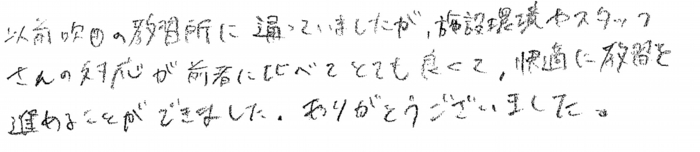 以前吹田の教習所に通っていましたが、施設環境やスタッフ
さんの対応が前者に比べてとても良くて、快適に教習を
進めることができました。ありがとうございました。